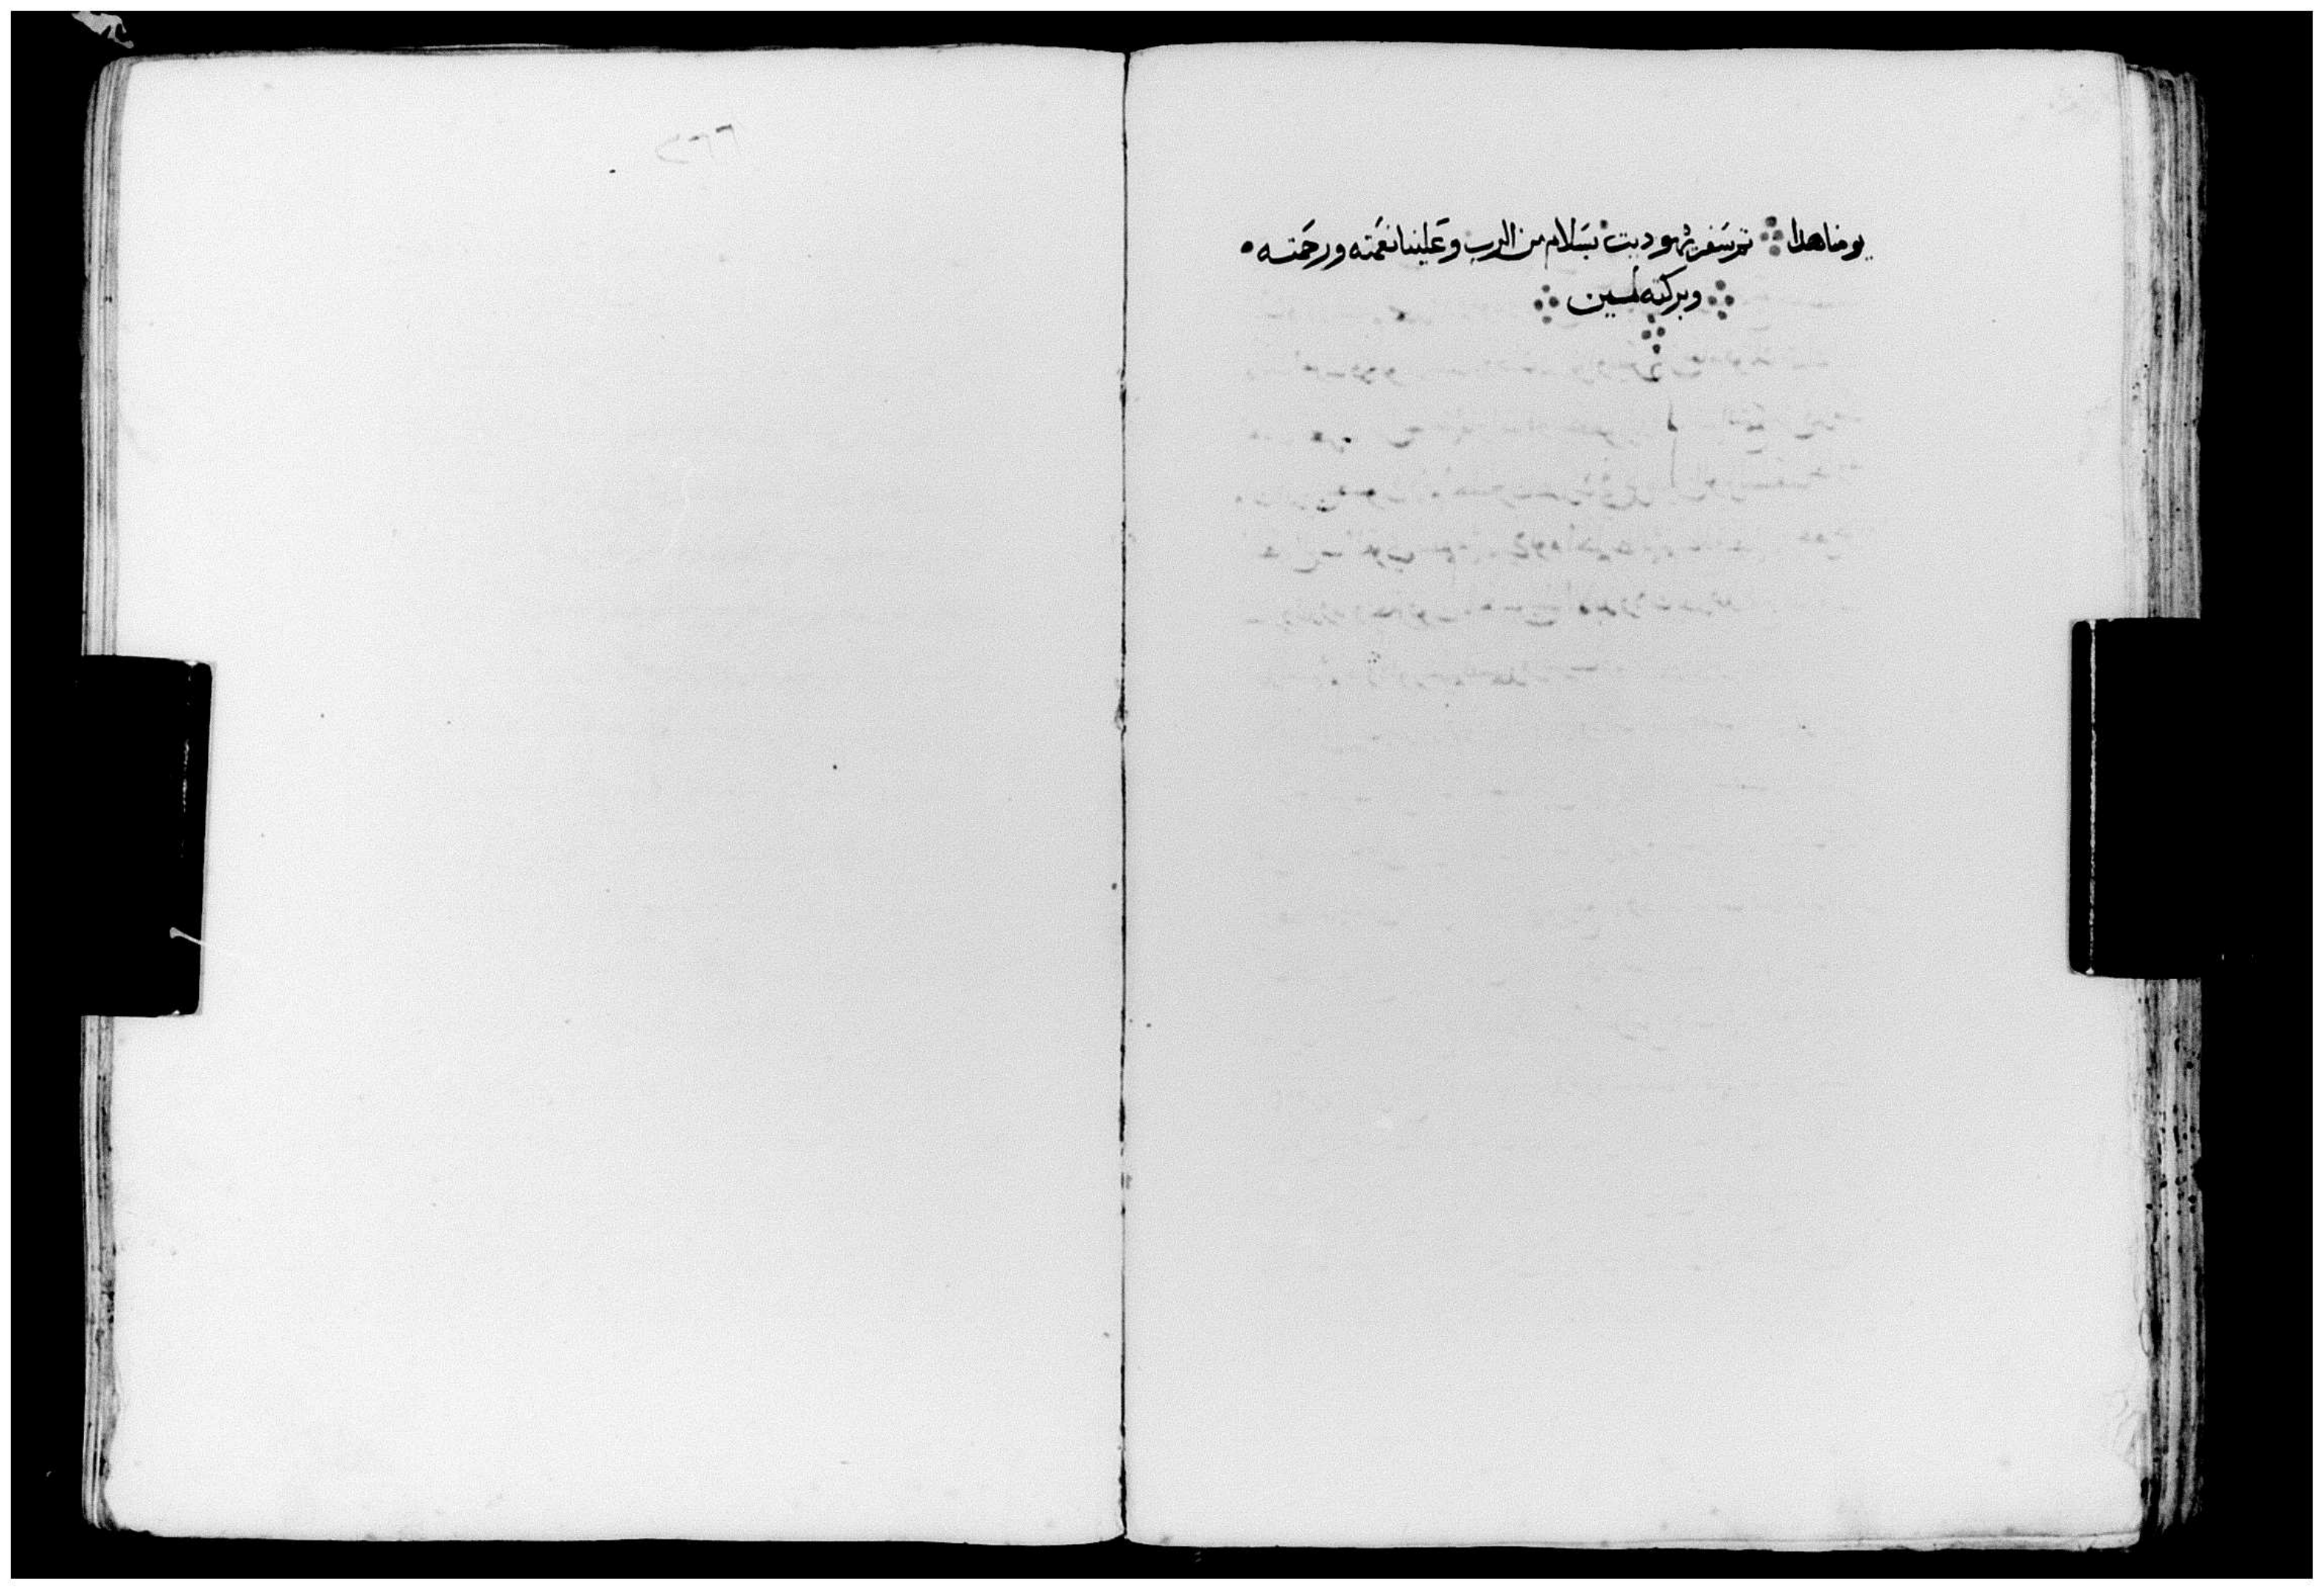 يومنا هدا ⁘ تم سفر يهوديت بسلام من الرب وعلينا نعمته ورحمته ه
⁘ وبركته امين ⁘